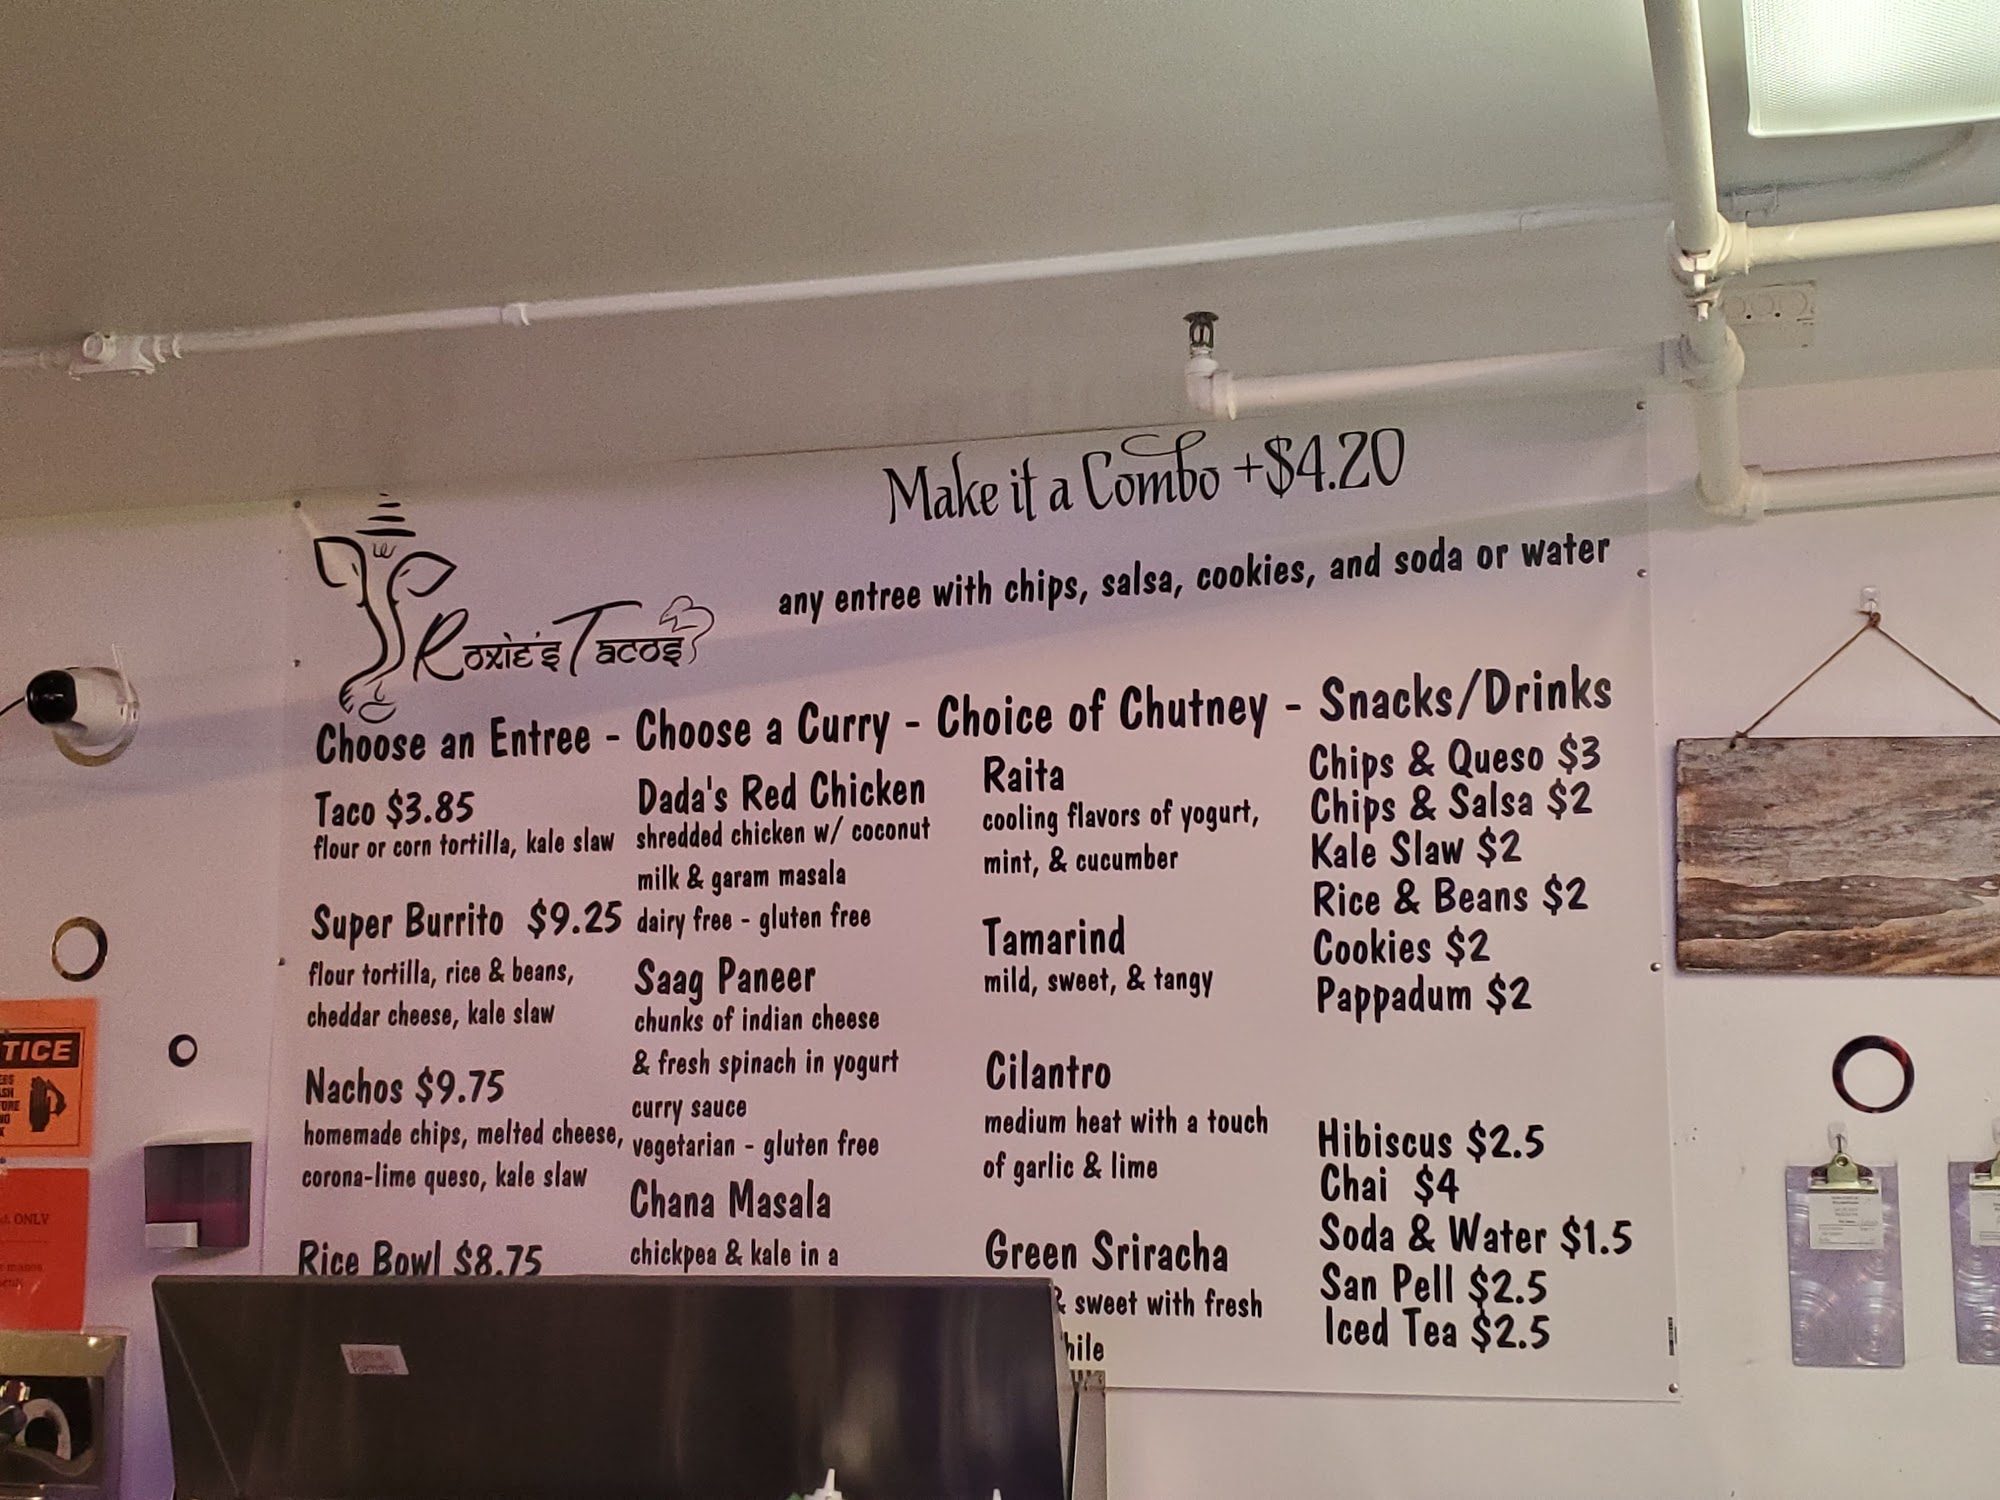 Make it a Combo +$4.20
any entree with chips, salsa, cookies, and soda or water
Roxie's Tacos
Choose an Entree - Choose a Curry - Choice of Chutney - Snacks/Drinks
Taco $3.85
flour or corn tortilla, kale slaw
Super Burrito $9.25
flour tortilla, rice & beans,
cheddar cheese, kale slaw
Nachos $9.75
homemade chips, melted cheese,
corona-lime queso, kale slaw
Rice Bowl $8.75
Dada's Red Chicken
shredded chicken w/ coconut
milk & garam masala
dairy free - gluten free
Saag Paneer
chunks of indian cheese
& fresh spinach in yogurt
curry sauce
vegetarian - gluten free
Chana Masala
chickpea & kale in a
Raita
cooling flavors of yogurt,
mint, & cucumber
Tamarind
mild, sweet, & tangy
Cilantro
medium heat with a touch
of garlic & lime
Green Sriracha
& sweet with fresh
hile
Chips & Queso $3
Chips & Salsa $2
Kale Slaw $2
Rice & Beans $2
Cookies $2
Pappadum $2
Hibiscus $2.5
Chai $4
Soda & Water $1.5
San Pell $2.5
Iced Tea $2.5
TICE
ONLY